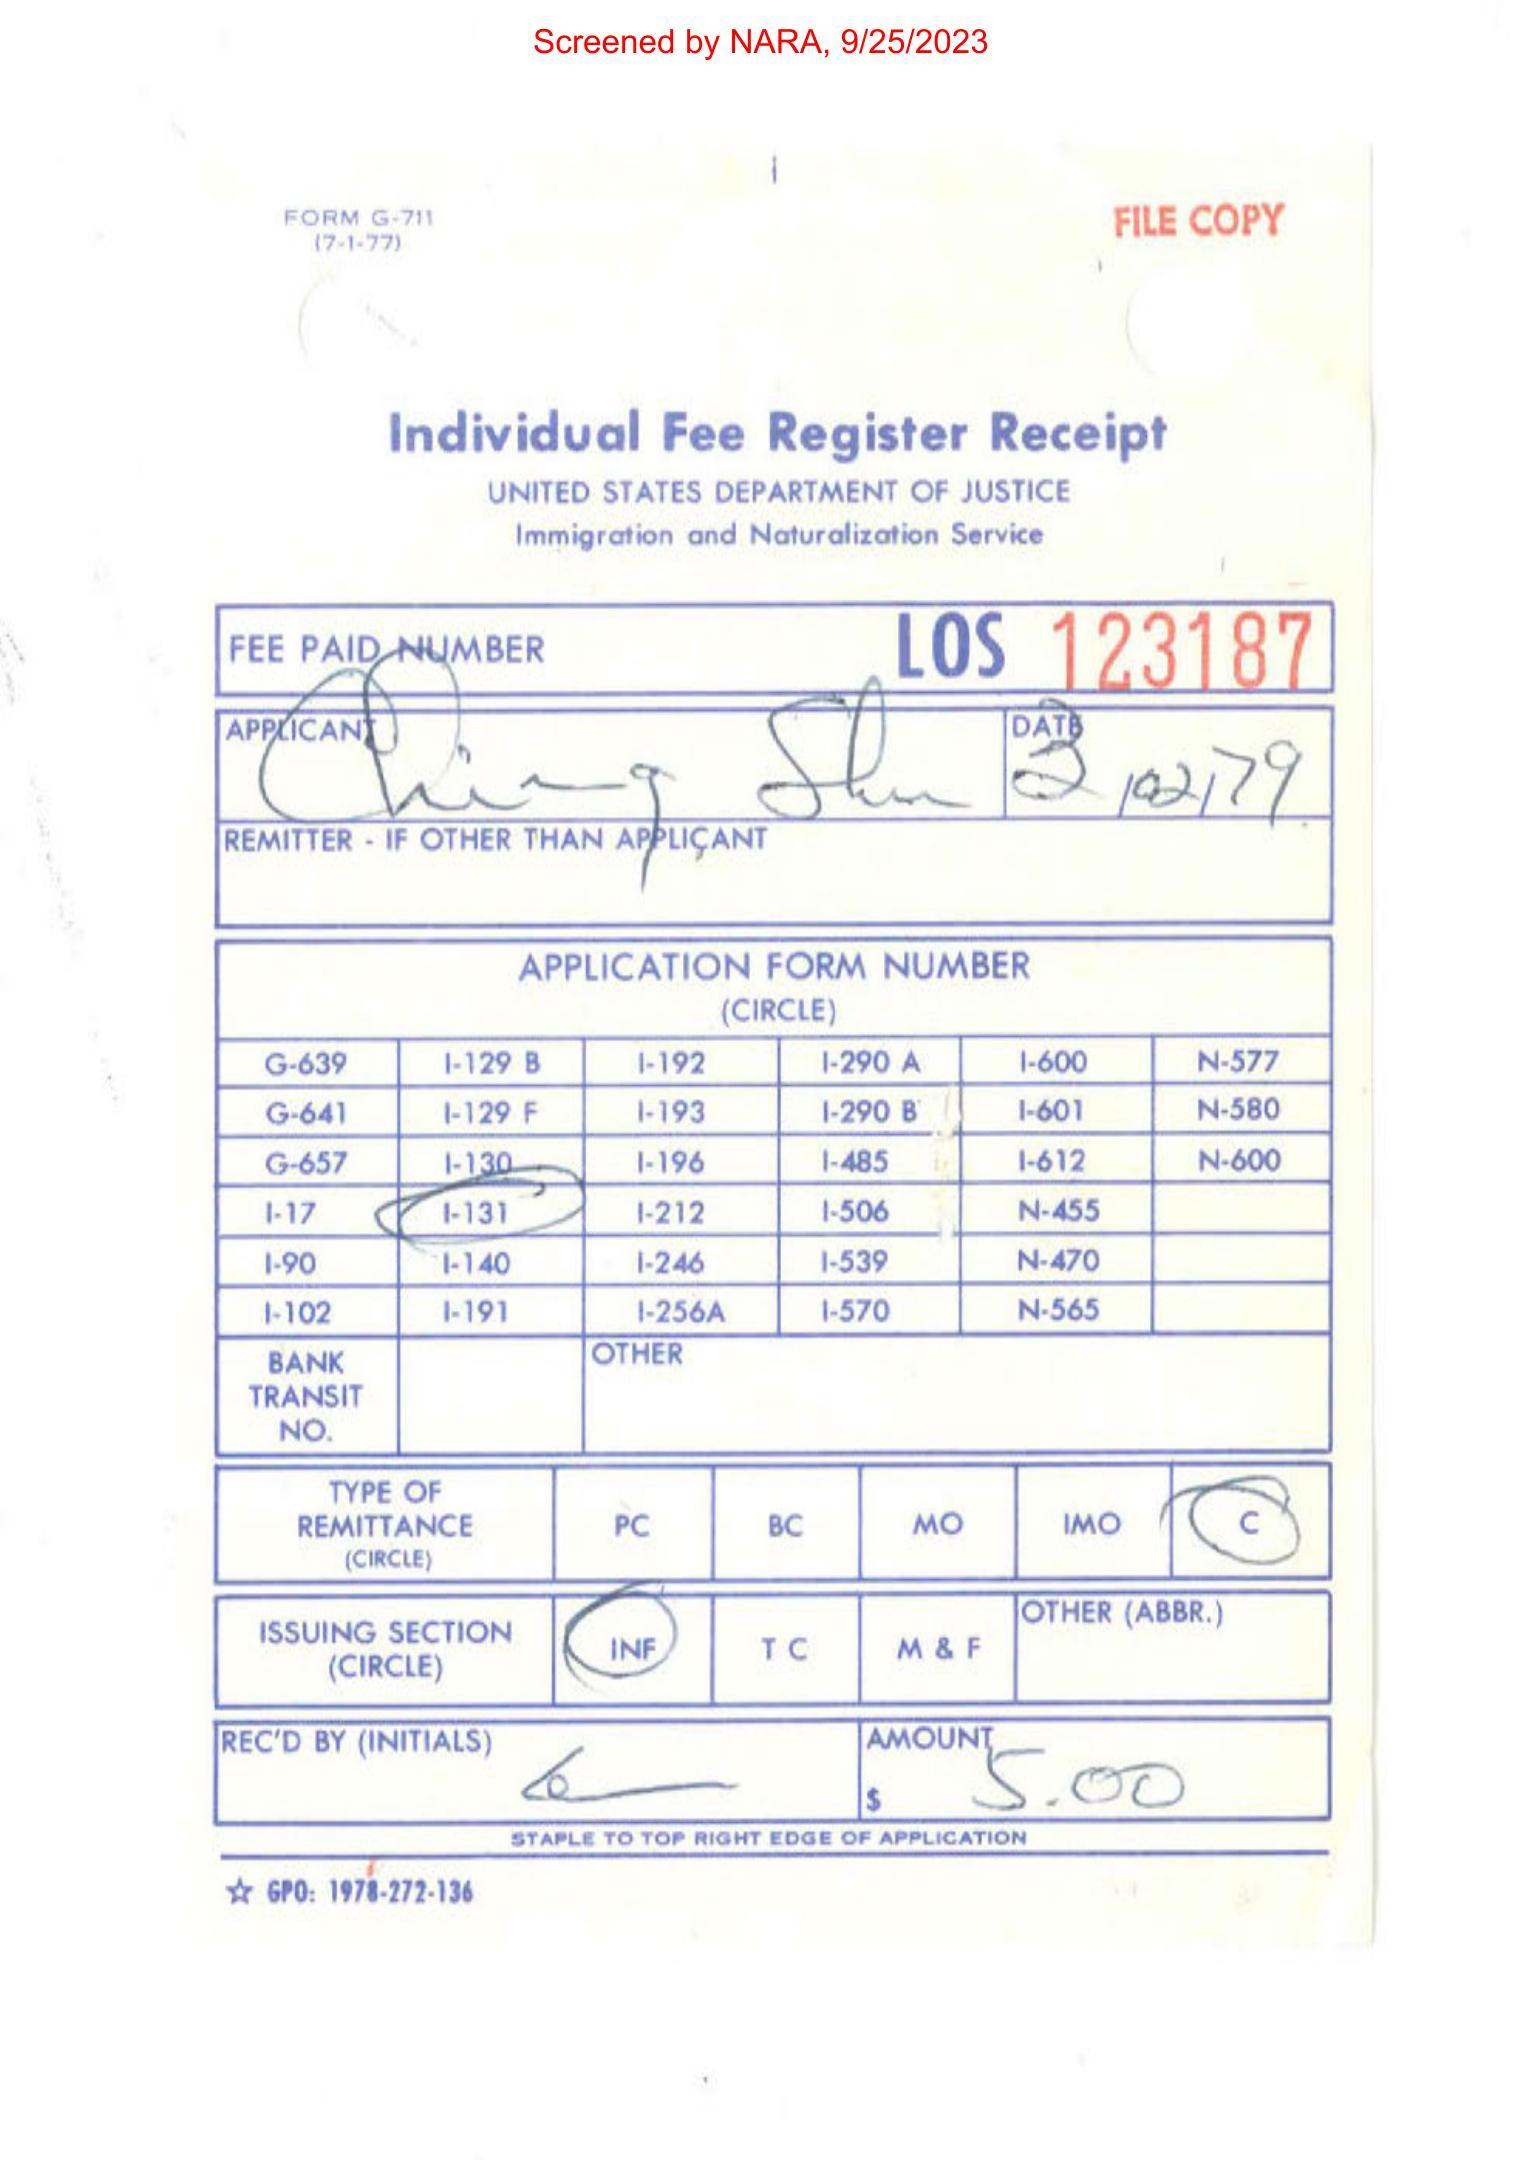 Screened by NARA, 9/25/2023
FORM G-711
(7-1-77)
FILE COPY
Individual Fee Register Receipt
UNITED STATES DEPARTMENT OF JUSTICE
Immigration and Naturalization Service
FEE PAID NUMBER LOS 123187
APPLICANT Ching DATE
REMITTER - IF OTHER THAN APPLICANT
APPLICATION FORM NUMBER
(CIRCLE)
G-639 I-129 B I-192 I-290 A I-600 N-577
G-641 I-129 F I-193 I-290 B I-601 N-580
G-657 I-130 I-196 I-485 I-612 N-600
I-17 I-131 I-212 I-506 N-455
I-90 I-140 I-246 I-539 N-470
I-102 I-191 I-256A I-570 N-565
BANK TRANSIT NO. OTHER
TYPE OF REMITTANCE (CIRCLE) PC BC MO IMO C
ISSUING SECTION (CIRCLE) INF T C M & F OTHER (ABBR.)
REC'D BY (INITIALS) AMOUNT $ 5.00
STAPLE TO TOP RIGHT EDGE OF APPLICATION
☆ GPO: 1978-272-136